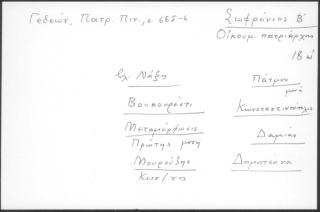 Γεδεών, Πατρ. Πιν., σ. 665-6
Σωφρόνιος Β'
Οἰκουμ. πατριάρχης
18 αἰ
βλ. Νάξη
Βουκουρέστι
Μεταμόρφωσις
Πρώτης
Μουρούζης
Κων/νος
Πάτμου
μονὴ
Κωνσταντινούπολις
Δαμιάς
Δημητσάνα